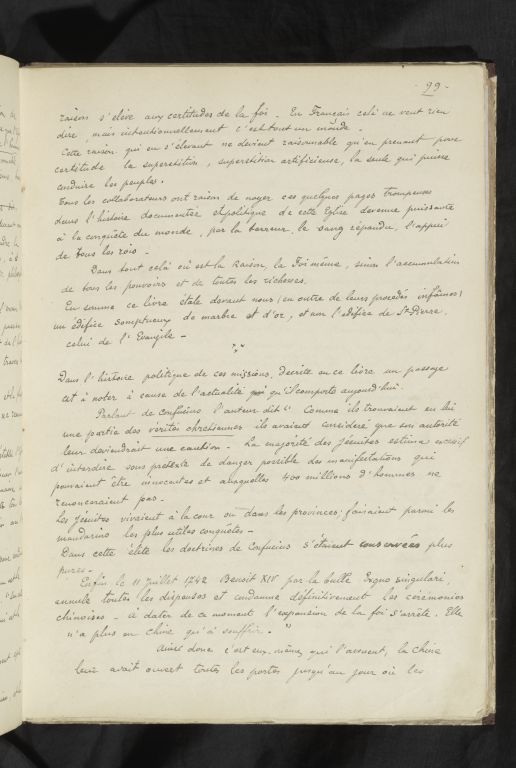 - 99 -
raison s'élève aux certitudes de la foi - En Français celà ne veut rien
dire, mais intentionnellement c'est tout un monde.
Cette raison qui en s'élevant ne devient raisonnable qu'en prenant pour
certitude la superstition, superstition artificieuse, la seule qui puisse
conduire les peuples.
Tous les collaborateurs ont raison de noyer ces quelques pages trompeuses
dans l'histoire documentée et politique de cette Eglise devenue puissante
à la conquête du monde, par la terreur, le sang répandu, l'appui
de tous les rois -
Dans tout celà où est la Raison, la Foi même, sinon l'accumulation
de tous les pouvoirs et de toutes les richesses.
En somme ce livre étale devant nous (en outre de leurs procédés infâmes)
un édifice somptueux de marbre et d'or, et non l'édifice de St Pierre,
celui de l'Evangile -
Dans l'histoire politique de ces missions, décrite en ce livre un passage
est à noter à cause de l'actualité qu'il comporte aujourd'hui.
Parlant de Confucius l'auteur dit " Comme ils trouvaient en lui
une partie des vérités chrétiennes ils avaient considéré que son autorité
leur deviendrait une caution - La majorité des Jésuites estima excessif
d'interdire sous prétexte de danger possible des manifestations qui
pouvaient être innocentes et auxquelles 400 millions d'hommes ne
renonceraient pas -
Les Jésuites vivaient à la cour ou dans les provinces; faisaient parmi les
mandarins les plus utiles conquêtes -
Dans cette élite les doctrines de Confucius s'étaient conservées plus
pures -
Enfin le 11 Juillet 1742 Benoit XIV par la bulle Exquo singulari,
annule toutes les dispenses et condamne définitivement les cérémonies
chinoises - à dater de ce moment l'expansion de la foi s'arrête. Elle
n'a plus en Chine qu'à souffrir. "
Ainsi donc c'est eux-mêmes qui l'avouent, la Chine
leur avait ouvert toutes les portes jusqu'au jour où les